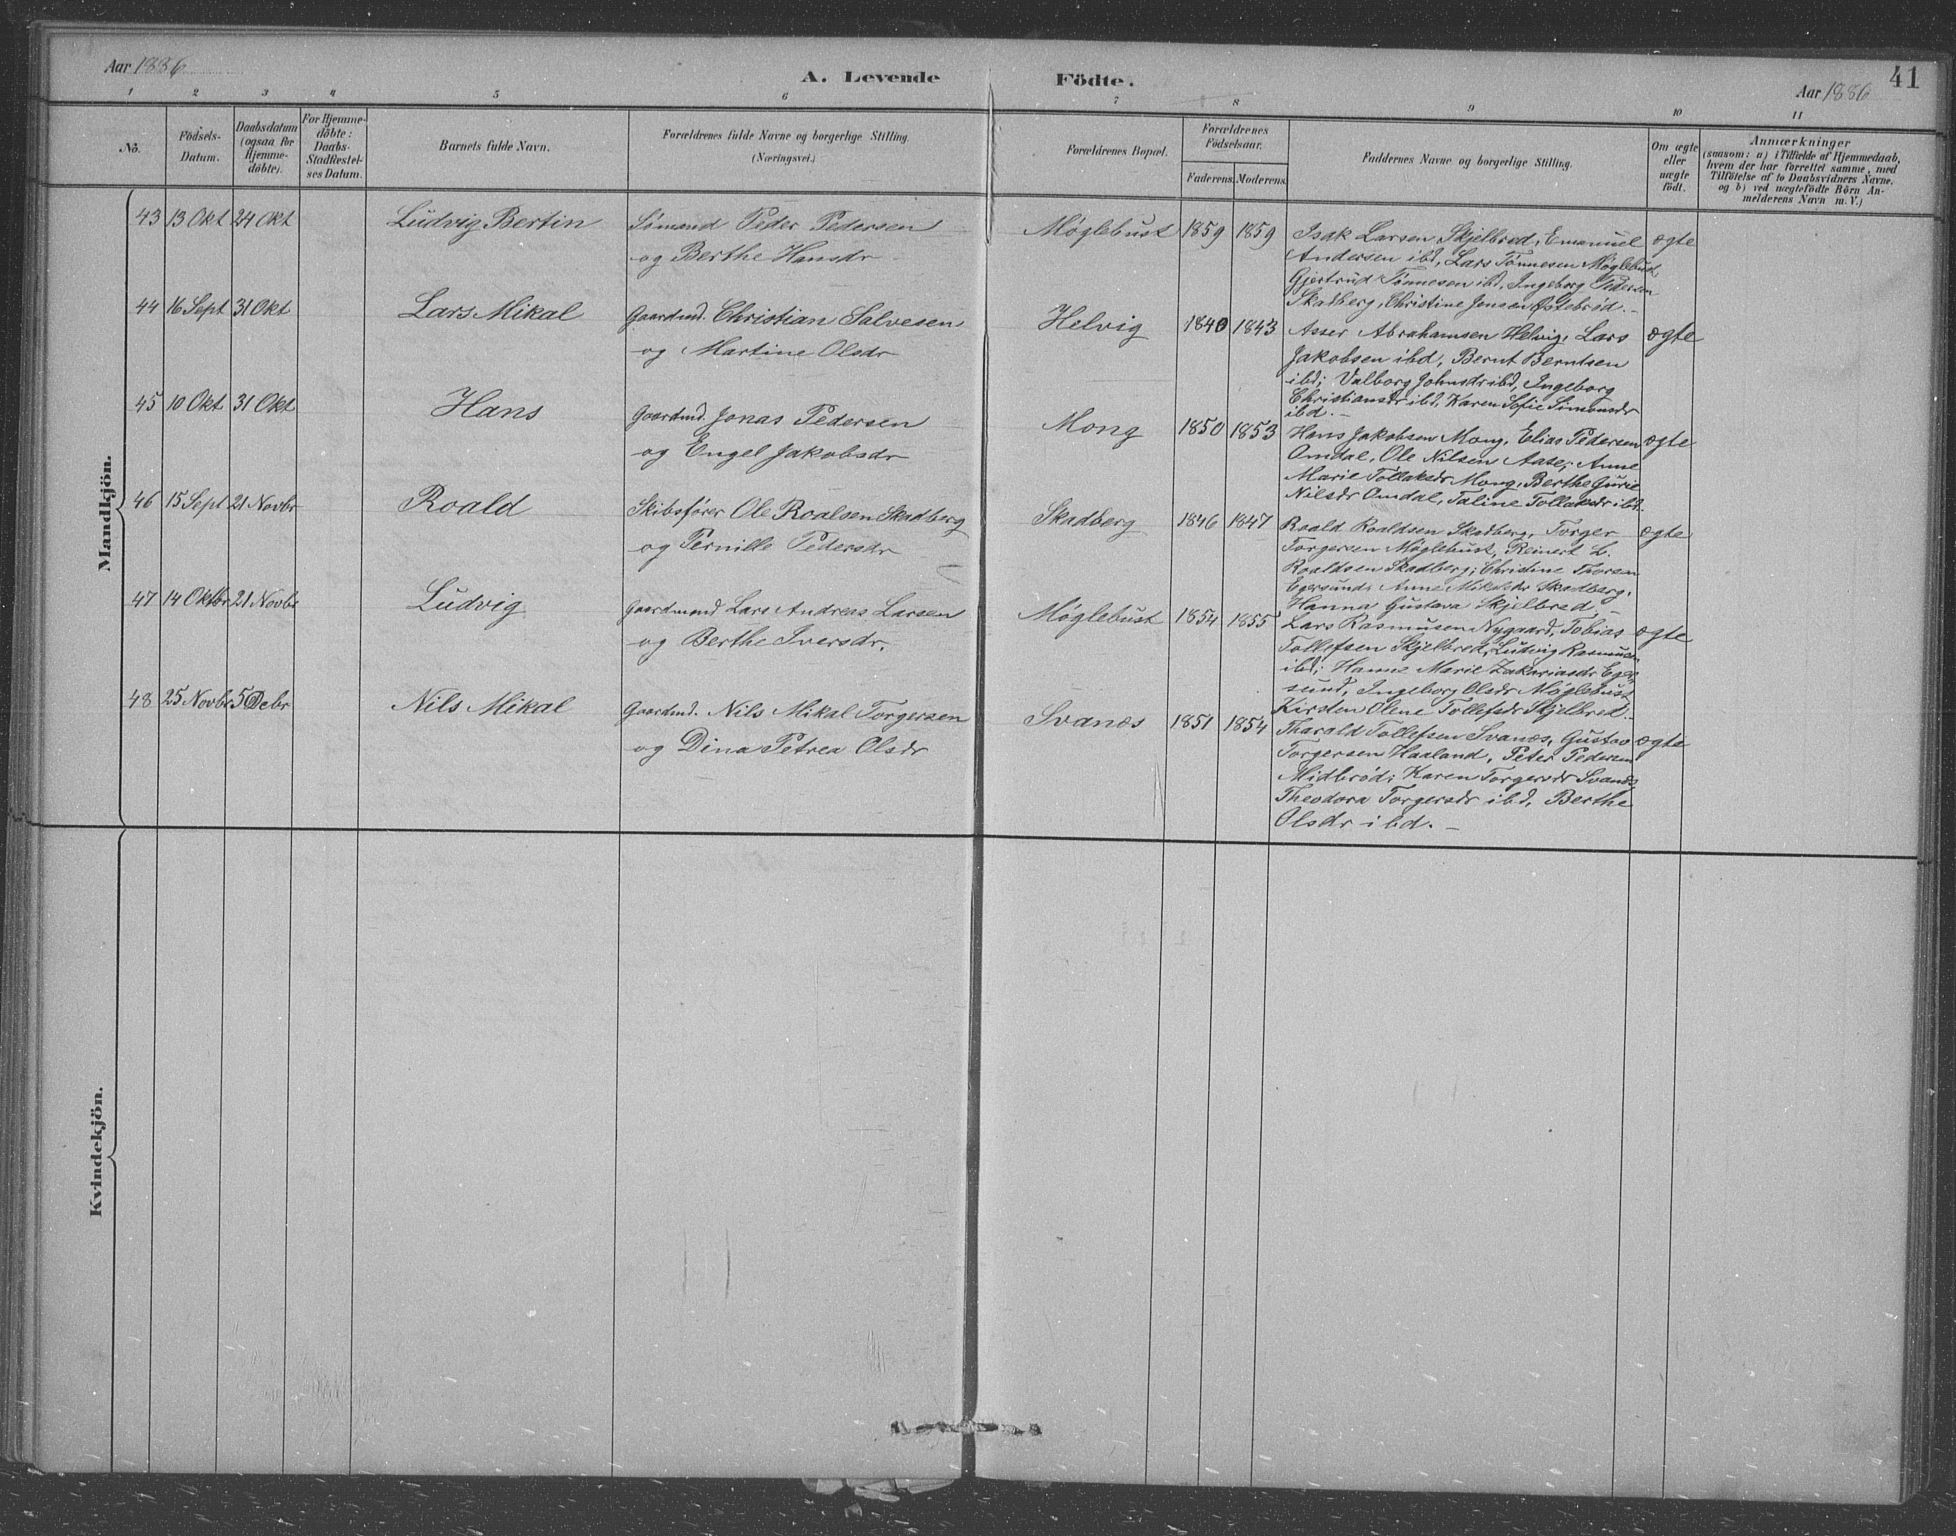 Aar 1886 A. Levende Födte. Aar 1886 41
1 2 3 4 5 6 7 8 9 10 11
No.
Födsels-
Datum.
Daabsdatum
(ogsaa for
Hjemme-
döbte).
For Hjemme-
döbte:
Daabs-
Stadfæstel-
ses Datum.
Barnets fulde Navn.
Forældrenes fulde Navne og borgerlige Stilling.
(Næringsvei.)
Forældrenes Bopæl.
Forældrenes
Födselsaar.
Faderens. Moderens.
Faddernes Navne og borgerlige Stilling.
Om ægte
eller
uægte
födt.
Anmærkninger
(saasom: a) i Tilfælde af Hjemmedaab,
hvem der har forrettet samme, med
Tilföielse af to Daabsvidners Navne,
og b) ved uægtefödte Börn An-
melderens Navn m. V.)
Mandkjön.
43 13 Okt 24 Okt Ludvig Bertin Sømand Peder Pedersen
og Berthe Hansdr
Møglebust 1859 1859
Isak Larsen Skjelbred, Emanuel
Andersen ibd, Lars Tønnesen Møglebust
Gjertrud Tønnesen ibd, Ingeborg Pedersen
Skadberg, Christine Jensen Østebrød.
ægte
44 16 Sept 31 Okt Lars Mikal Gaardmd. Christian Salvesen
og Martine Olsdr
Helvig 1840 1843
Asser Abrahamsen Helvig, Lars
Jakobsen ibd, Bernt Berntsen
ibd; Valborg Johnsdr ibd, Ingeborg
Christiansdr ibd, Karen Sofie Simonsdr
ibd.
ægte
45 10 Okt 31 Okt Hans Gaardmd. Jonas Pedersen
og Engel Jakobsdr
Mong 1850 1853
Hans Jakobsen Mong, Elias Pedersen
Omdal, Ole Nilsen Aase; Anne
Marie Tollaksdr Mong, Berthe Gurie
Nilsdr Omdal, Taline Tollaksdr ibd.
ægte
46 15 Sept 21 Novbr Roald Skibsfører Ole Roalsen Skadberg
og Pernille Pedersdr
Skadberg 1846 1847
Roald Roaldsen Skadberg, Torger
Torgersen Møglebust, Reinert L.
Roaldsen Skadberg; Christine Thorsen
Egersund, Anne Mikalsdr Skadberg,
Hanna Gustava Skjelbred.
ægte
47 14 Oktbr 21 Novbr Ludvig Gaardmand Lars Andreas Larsen
og Berthe Iversdr.
Møglebust 1854 1855
Lars Rasmusen Nygaard, Tobias
Tollefsen Skjelbred, Ludvig Rasmusen
ibd; Hanne Marie Zakariasdr Eger-
sund, Ingeborg Olsdr Møglebust
Kirsten Olene Tollefsdr Skjelbred.
ægte
48 25 Novbr 5 Debr Nils Mikal Gaardmd. Nils Mikal Torgersen
og Dina Petrea Olsdr
Svanæs 1851 1854
Tharald Tollefsen Svanæs, Gustav
Torgersen Haaland, Peter Pedersen
Midbrød; Karen Torgersdr Svanæs,
Theodora Torgersdr ibd, Berthe
Olsdr ibd.
ægte
Kvindekjön.